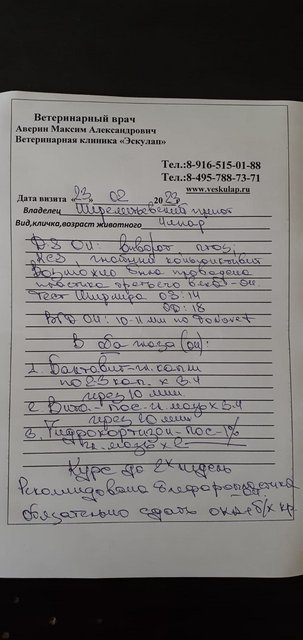 Ветеринарный врач
Аверин Максим Александрович
Ветеринарная клиника «Эскулап»
Тел.:8-916-515-01-88
Тел.:8-495-788-73-71
www.veskulap.ru
Дата визита «23» 02 2023г
Владелец Шереметьевский приют
Вид,кличка,возраст животного Чинар
DS OU: энтропион
гнойный конъюнктивит
Возможно была проведена
пластика третьего века - OU.
Тест Ширмера OS: 14
OD: 18
ВГД OU: 10-11 мм по Tonovet
В оба глаза (OU):
1. Бактовит - гл. капли
по 2-3 кап. x 3.4
через 10 мин.
2. Вита-Пос - гл. мазь x 3.4
через 20 мин.
3. Гидрокортизон-Пос - 1%
гл. мазь x 2
Курс до 2х недель
Рекомендована блефаропластика
OU
обязательно сдать ока б/х кр.